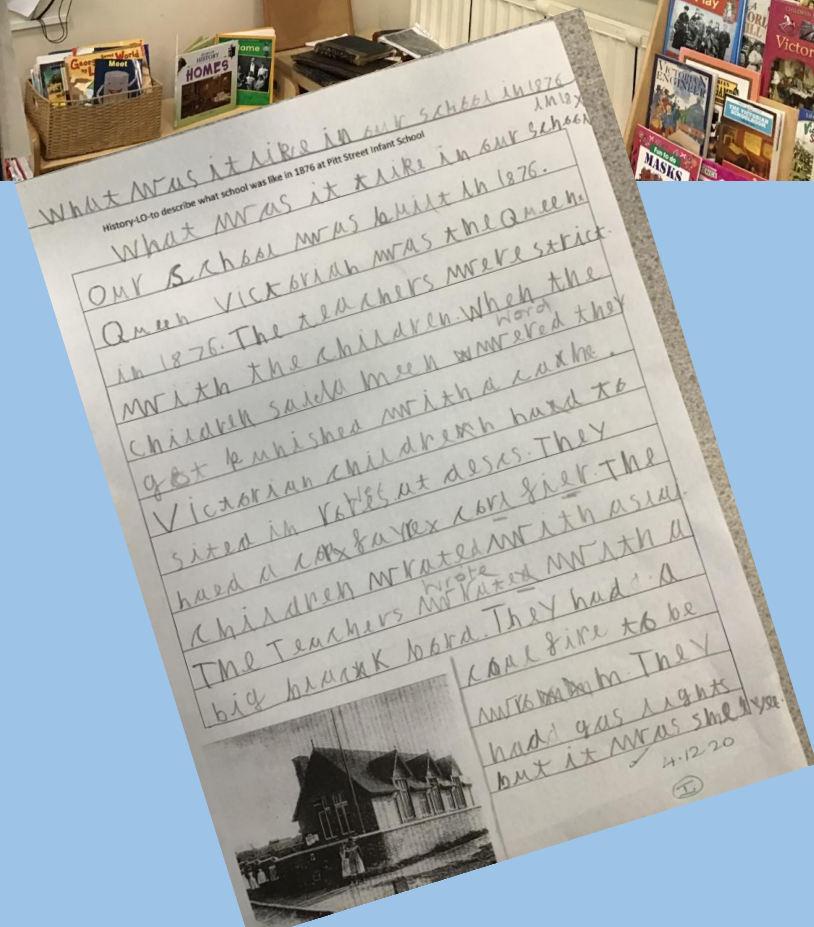 World
Meet
HISTORY
HOMES
Home
Play
CHILDREN
VICTORIAN
ENGINEER
THE VICTORIAN
Victor
Fun to do
MASKS
What was it like in our school in 1876
History-LO-to describe what school was like in 1876 at Pitt Street Infant School
What was it like in our school
in 18
Our school was built in 1876.
Queen Victorian was the Queen
in 1876. The teachers were strict.
with the children. When the
word
children saida meen wered they
got punished with a cathe.
Victorian children haed to
sited in rowes at descs. They
haed a cori fier. The
children wrated with a slat.
wrote
The Teachers wrated with a
big blaak bord. They had a
coul fire to be
worm. They
had gas lights
but it was smellyee.
4.12.20
I